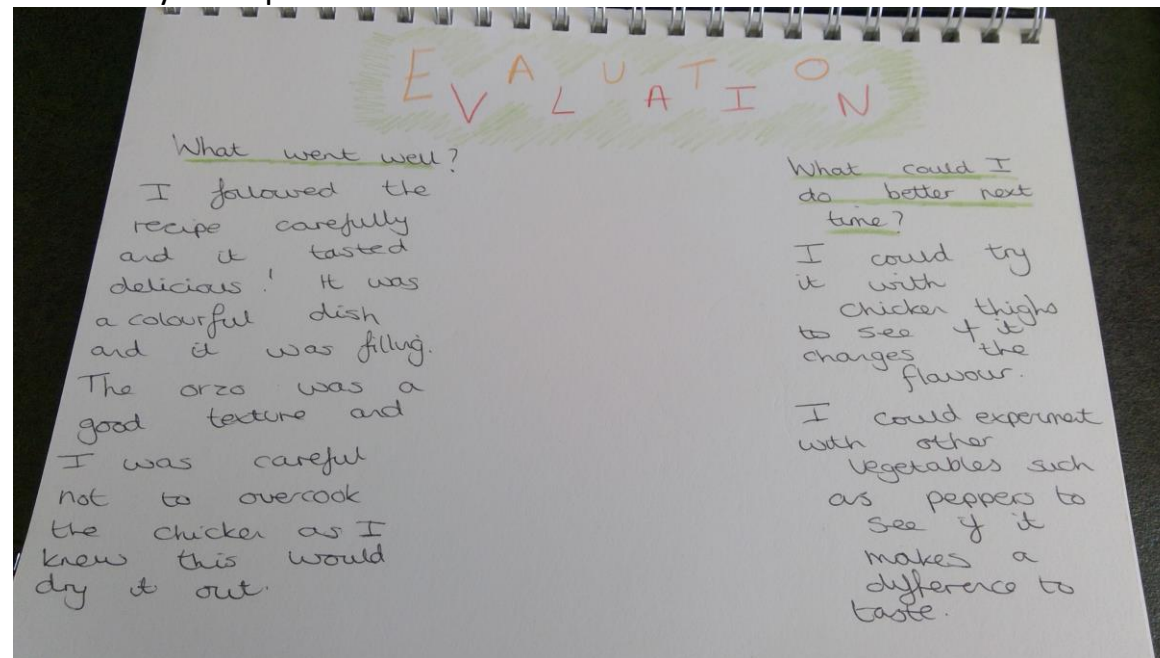 EVALUATION
What went well?
I followed the
recipe carefully
and it tasted
delicious! It was
a colourful dish
and it was filling.
The orzo was a
good texture and
I was careful
not to overcook
the chicken as I
knew this would
dry it out.
What could I
do better next
time?
I could try
it with
chicken thighs
to see if it
changes the
flavour.
I could experiment
with other
vegetables such
as peppers to
see if it
makes a
difference to
taste.